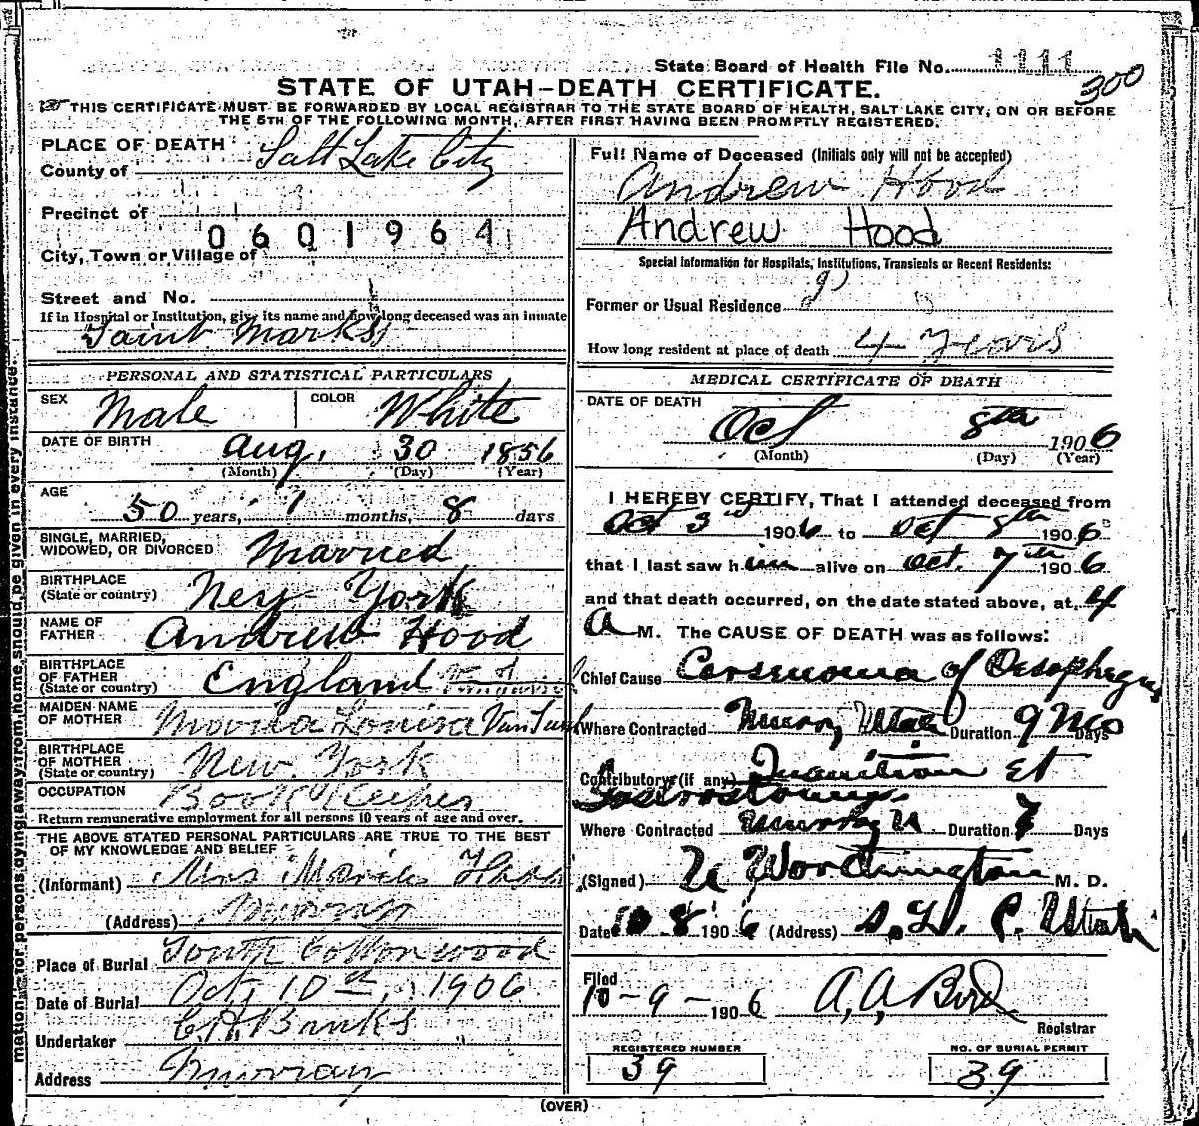 State Board of Health File No. 1111
300
STATE OF UTAH—DEATH CERTIFICATE.
THIS CERTIFICATE MUST BE FORWARDED BY LOCAL REGISTRAR TO THE STATE BOARD OF HEALTH, SALT LAKE CITY, ON OR BEFORE
THE 5TH OF THE FOLLOWING MONTH, AFTER FIRST HAVING BEEN PROMPTLY REGISTERED.
PLACE OF DEATH
County of Salt Lake City
Precinct of
0601964
City, Town or Village of
Street and No.
If in Hospital or Institution, give its name and how long deceased was an inmate
Saint Marks
Full Name of Deceased (Initials only will not be accepted)
Andrew Hood
Andrew Hood
Special Information for Hospitals, Institutions, Transients or Recent Residents:
Former or Usual Residence
How long resident at place of death 4 years
PERSONAL AND STATISTICAL PARTICULARS
SEX Male COLOR White
DATE OF BIRTH Aug. 30 1856
(Month) (Day) (Year)
AGE
50 years, 1 months, 8 days
SINGLE, MARRIED,
WIDOWED, OR DIVORCED Married
BIRTHPLACE
(State or country) New York
NAME OF
FATHER Andrew Hood
BIRTHPLACE
OF FATHER
(State or country) England
MAIDEN NAME
OF MOTHER Louisa Van
BIRTHPLACE
OF MOTHER
(State or country) New York
OCCUPATION Book Keeper
Return remunerative employment for all persons 10 years of age and over.
THE ABOVE STATED PERSONAL PARTICULARS ARE TRUE TO THE BEST
OF MY KNOWLEDGE AND BELIEF
(Informant) Mrs Hood
(Address) Murray
Place of Burial South Cottonwood
Date of Burial Oct, 10th, 1906
Undertaker Banks
Address Murray
MEDICAL CERTIFICATE OF DEATH
DATE OF DEATH
Oct 8th 1906
(Month) (Day) (Year)
I HEREBY CERTIFY, That I attended deceased from
Oct 3rd 1906 to Oct 8th 1906
that I last saw him alive on Oct. 7th 1906
and that death occurred, on the date stated above, at 4
A M. The CAUSE OF DEATH was as follows:
Chief Cause of Oesophagus
Where Contracted Murray Utah Duration 9 Mos Days
Contributory (if any) et
Where Contracted Murray U Duration 7 Days
(Signed) U Worthington M. D.
Date 10 8 1906 (Address) Utah
Filed
10-9-1906 A, A, Bird
Registrar
REGISTERED NUMBER
39
NO. OF BURIAL PERMIT
39
(OVER)
mation for persons dying away from home should be given in every instance.